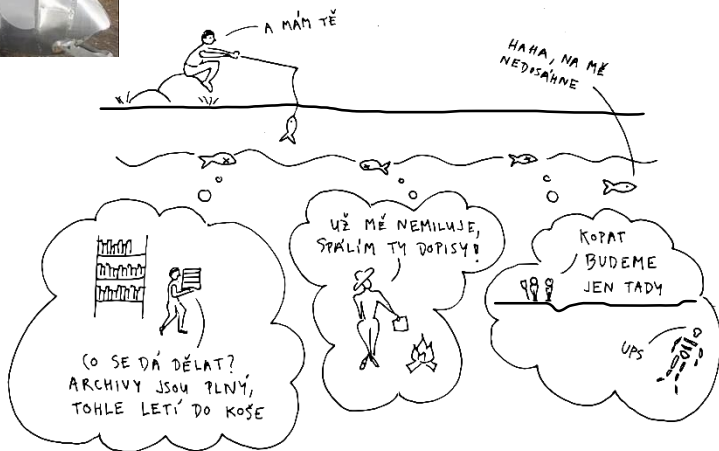 A MÁM TĚ
HAHA, NA MĚ
NEDOSÁHNE
CO SE DÁ DĚLAT?
ARCHIVY JSOU PLNÝ,
TOHLE LETÍ DO KOŠE
UŽ MĚ NEMILUJE,
SPÁLÍM TY DOPISY!
KOPAT
BUDEME
JEN TADY
UPS